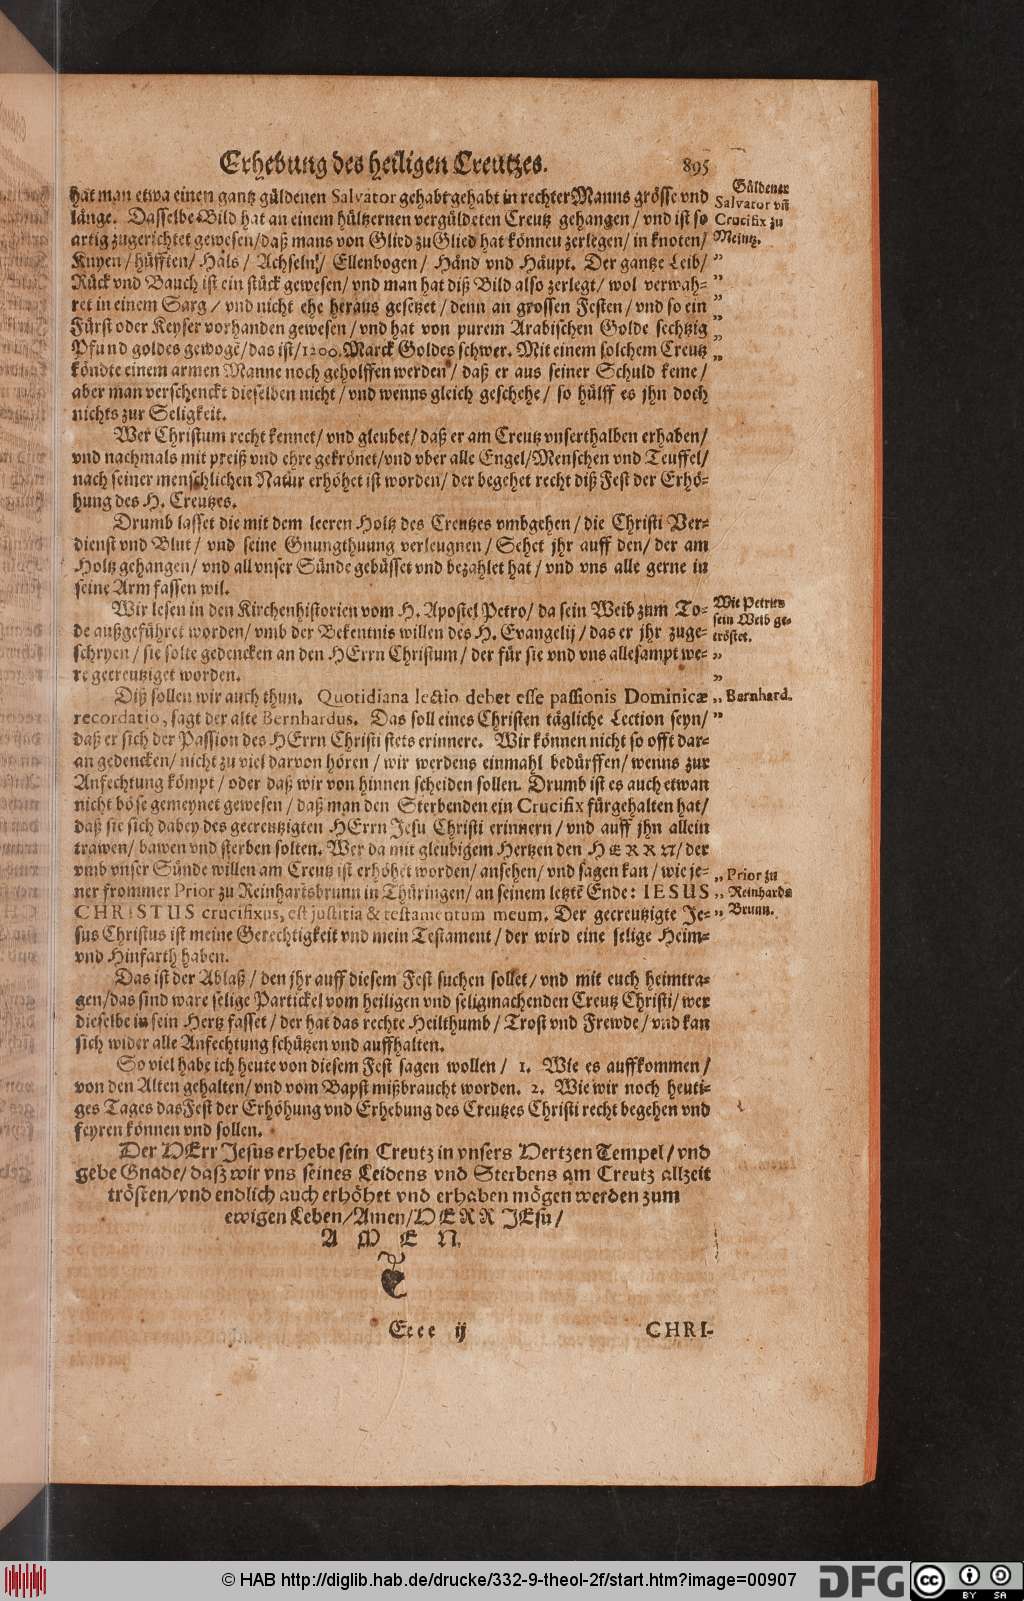 Erhebung des heiligen Creutzes. 895
hat man etwa einen gantz güldenen Salvator gehabt gehabt in rechter Manns grösse vnd
länge. Dasselbe Bild hat an einem hültzernen vergüldeten Creutz gehangen / vnd ist so
artig zugerichtet gewesen / daß mans von Glied zu Glied hat können zerlegen / in knoten /
Knyen / hüfften / Hals / Achseln / Ellenbogen / Händ vnd Häupt. Der gantze Leib /
Rück vnd Bauch ist ein stück gewesen / vnd man hat diß Bild also zerlegt / wol verwah-
ret in einem Sarg / vnd nicht ehe heraus gesetzet / denn an grossen Festen / vnd so ein
Fürst oder Keyser vorhanden gewesen / vnd hat von purem Arabischen Golde sechtzig
Pfund goldes gewogē / das ist / 1200. Marck Goldes schwer. Mit einem solchem Creutz
köndte einem armen Manne noch geholffen werden / daß er aus seiner Schuld keme /
aber man verschenckt dieselben nicht / vnd wenns gleich geschehe / so hülff es jhn doch
nichts zur Seligkeit.
Wer Christum recht kennet / vnd gleubet / daß er am Creutz vnserthalben erhaben /
vnd nachmals mit preiß vnd ehre gekrönet / vnd vber alle Engel / Menschen vnd Teuffel /
nach seiner menschlichen Natur erhöhet ist worden / der begehet recht diß Fest der Erhö-
hung des H. Creutzes.
Drumb lasset die mit dem leeren Holtz des Creutzes vmbgehen / die Christi Ver-
dienst vnd Blut / vnd seine Gnungthuung verleugnen / Sehet jhr auff den / der am
Holtz gehangen / vnd all vnser Sünde gebüsset vnd bezahlet hat / vnd vns alle gerne in
seine Arm fassen wil.
Wir lesen in den Kirchenhistorien vom H. Apostel Petro / da sein Weib zum To-
de außgeführet worden / vmb der Bekentnis willen des H. Evangelij / das er jhr zuge-
schryen / sie solte gedencken an den HErrn Christum / der für sie vnd vns allesampt we-
re gecreutziget worden.
Diß sollen wir auch thun. Quotidiana lectio debet esse passionis Dominicæ
recordatio, sagt der alte Bernhardus. Das soll eines Christen tägliche Lection seyn /
daß er sich der Passion des HErrn Christi stets erinnere. Wir können nicht so offt dar-
an gedencken / nicht zu viel darvon hören / wir werdens einmahl bedürffen / wenns zur
Anfechtung kömpt / oder daß wir von hinnen scheiden sollen. Drumb ist es auch etwan
nicht böse gemeynet gewesen / daß man den Sterbenden ein Crucifix fürgehalten hat /
daß sie sich dabey des gecreutzigten HErrn Jesu Christi erinnern / vnd auff jhn allein
trawen / bawen vnd sterben solten. Wer da mit gleubigem Hertzen den HERRN / der
vmb vnser Sünde willen am Creutz ist erhöhet worden / ansehen / vnd sagen kan / wie je-
ner frommer Prior zu Reinhartsbrunn in Thüringen / an seinem letztē Ende: IESUS
CHRISTUS crucifixus, est justitia & testamentum meum. Der gecreutzigte Je-
sus Christus ist meine Gerechtigkeit vnd mein Testament / der wird eine selige Heim-
vnd Hinfarth haben.
Das ist der Ablaß / den jhr auff diesem Fest suchen sollet / vnd mit euch heimtra-
gen / das sind ware selige Partickel vom heiligen vnd seligmachenden Creutz Christi / wer
dieselbe in sein Hertz fasset / der hat das rechte Heilthumb / Trost vnd Frewde / vnd kan
sich wider alle Anfechtung schützen vnd auffhalten.
So viel habe ich heute von diesem Fest sagen wollen / 1. Wie es auffkommen /
von den Alten gehalten / vnd vom Bapst mißbraucht worden. 2. Wie wir noch heuti-
ges Tages das Fest der Erhöhung vnd Erhebung des Creutzes Christi recht begehen vnd
feyren können vnd sollen.
Der HErr Jesus erhebe sein Creutz in vnsers Hertzen Tempel / vnd
gebe Gnade / daß wir vns seines Leidens vnd Sterbens am Creutz allzeit
trösten / vnd endlich auch erhöhet vnd erhaben mögen werden zum
ewigen Leben / Amen / HERR JEsu /
A M E N.
Eeee ij CHRI-
Güldener
Salvator vñ
Crucifix zu
Meintz.
Wie Petrus
sein Weib ge-
tröstet.
Bernhard.
Prior zu
Reinhards
Brunn.
© HAB http://diglib.hab.de/drucke/332-9-theol-2f/start.htm?image=00907
DFG
cc BY SA